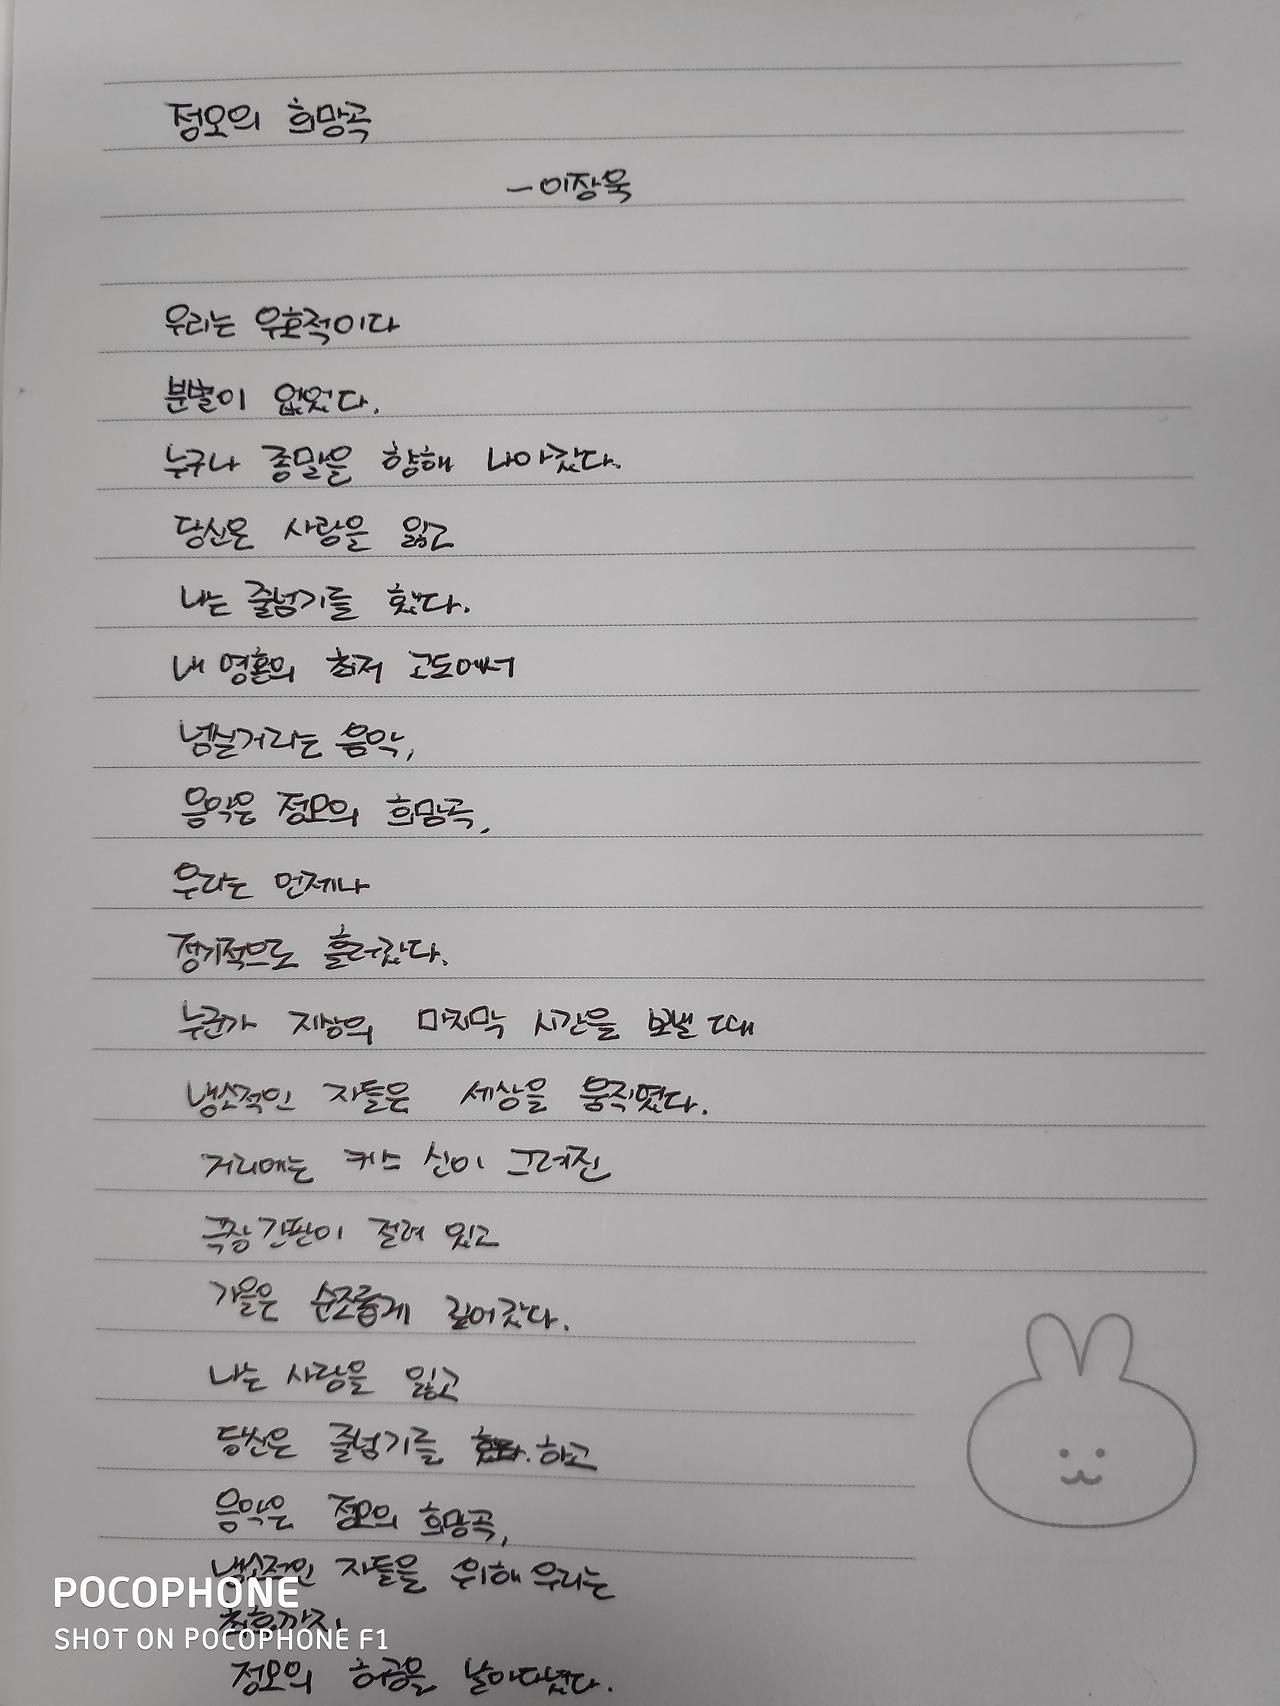 정오의 희망곡
- 이장욱
우리는 우호적이다
분별이 없었다.
누구나 종말을 향해 나아갔다.
당신은 사랑을 잃고
나는 줄넘기를 했다.
내 영혼의 최저 고도에서
넘실거리는 음악,
음악은 정오의 희망곡,
우리는 언제나
정기적으로 흘러갔다.
누군가 지상의 마지막 시간을 보낼 때
냉소적인 자들은 세상을 움직였다.
거리에는 키스 신이 그려진
극장 간판이 걸려 있고
가을은 순조롭게 깊어갔다.
나는 사랑을 잃고
당신은 줄넘기를 하고
음악은 정오의 희망곡,
냉소적인 자들을 위해 우리는
최후까지
정오의 허공을 날아다녔다.
POCOPHONE
SHOT ON POCOPHONE F1